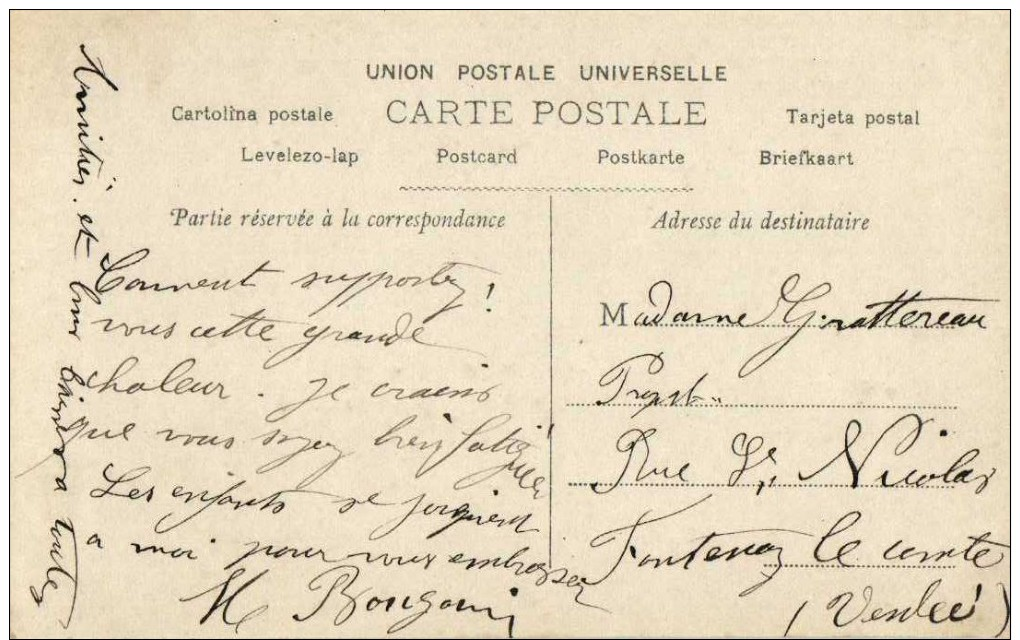 UNION POSTALE UNIVERSELLE
Cartolina postale CARTE POSTALE Tarjeta postal
Levelezo-lap Postcard Postkarte Briefkaart
Partie réservée à la correspondance
Comment supportez
vous cette grande
chaleur. je crains
que vous soyez bien fatiguée
Les enfants se joignent
a moi pour vous embrasser
M Bougoui
Amitiés. et bons baisers a toutes
Adresse du destinataire
Madame Grattereau
Propst..
Rue St. Nicolas
Fontenay le comte
(Vendée)